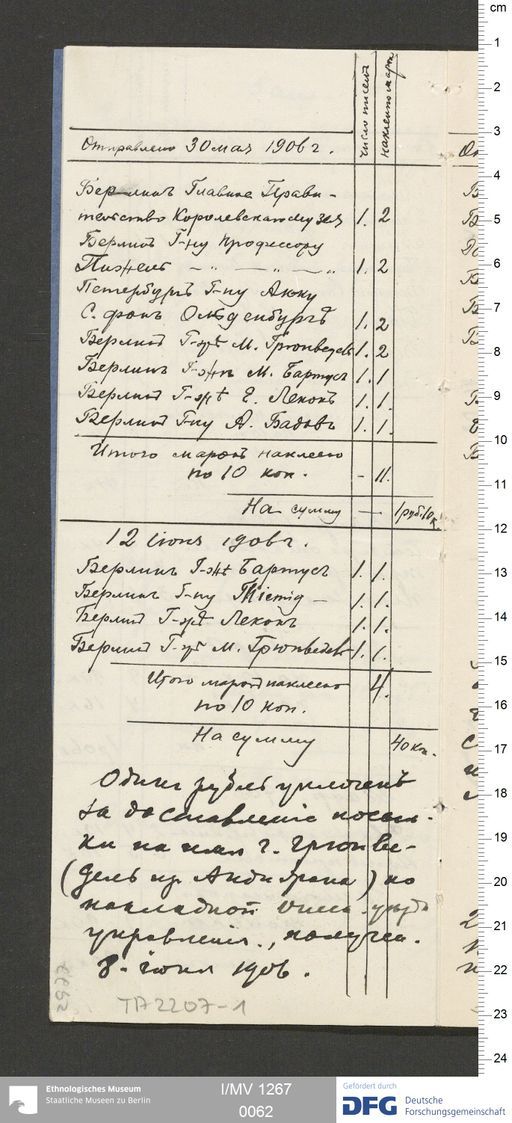 число писем
наклеено марок
Отправлено 30 мая 1906 г.
Берлинъ Главное Прави-
тельство Королевскаго музея 1. 2
Берлинъ Г-ну Профессору
Пишель — „ — „ — „ 1. 2
Петербургъ Г-ну Акку
С. фонъ Ольденбургъ 1. 2
Берлинъ Г-жѣ М. Грюнведель 1. 2
Берлинъ Г-жѣ М. Бартусъ 1. 1
Берлинъ Г-жѣ Е. Лекокъ 1. 1.
Берлинъ Г-ну А. 1. 1.
Итого марокъ наклеено
по 10 коп. - 11.
На сумму — 1 руб. 10 к.
12 Іюня 1906 г.
Берлинъ Г-жѣ Бартусъ 1. 1.
Берлинъ Г-ну Thiemig — 1. 1.
Берлинъ Г-жѣ Лекокъ 1. 1.
Берлинъ Г-жѣ М. Грюнведель 1. 1.
Итого марокъ наклеено 4.
по 10 коп.
На сумму 40 коп.
Одинъ рубль уплоченъ
За доставленіе посыл-
ки на имя г. Грюнве-
(дель из Андижана) по
накладной
управленія., получен.
8. іюня 1906.
2622
TA 2207-1
cm
1
2
3
4
5
6
7
8
9
10
11
12
13
14
15
16
17
18
19
20
21
22
23
24
Ethnologisches Museum
Staatliche Museen zu Berlin
I/MV 1267
0062
Gefördert durch
DFG
Deutsche
Forschungsgemeinschaft